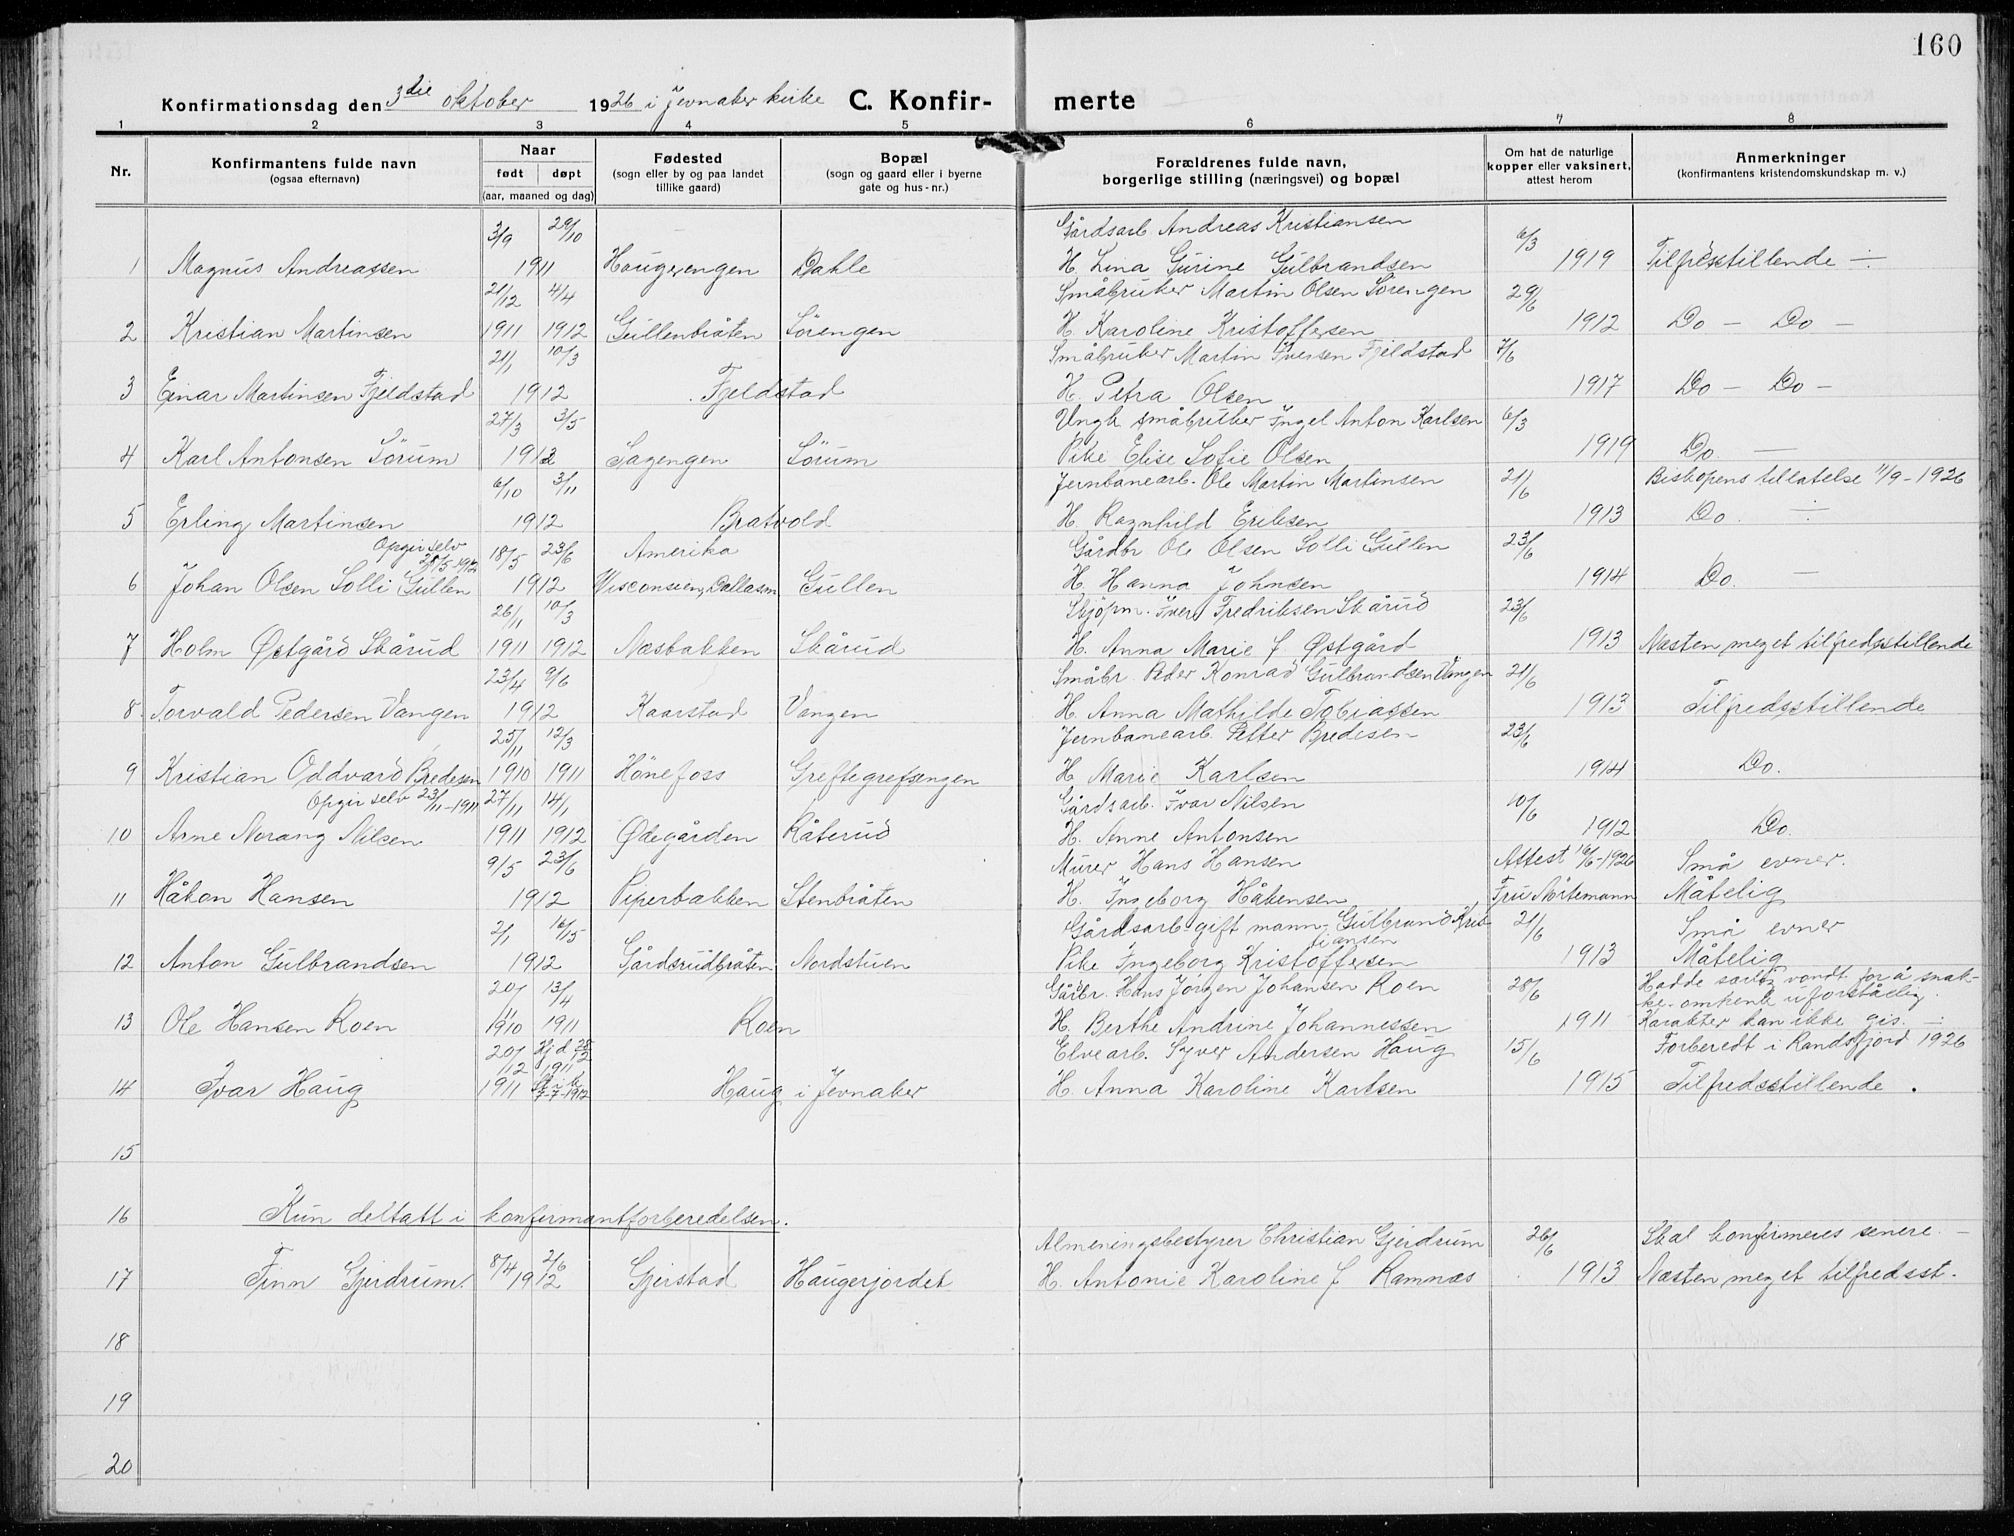 160
Konfirmationsdag den 3die oktober 1926 i Jevnaker kirke C. Konfir- merte
1 2 3 4 5 6 7 8
Nr. Konfirmantens fulde navn (ogsaa efternavn) Naar født døpt (aar, maaned og dag) Fødested (sogn eller by og paa landet tillike gaard) Bopæl (sogn og gaard eller i byerne gate og hus-nr.) Forældrenes fulde navn, borgerlige stilling (næringsvei) og bopæl Om hat de naturlige kopper eller vaksinert, attest herom Anmerkninger (konfirmantens kristendomskundskap m. v.)
3/9 29/10 Gårdsarb Andreas Kristiansen 6/3
1 Magnus Andreassen 1911 Haugsengen Dahle H. Lina Gurine Gulbrandsen 1919 Tilfredsstillende
21/12 4/4 Småbruker Martin Olsen Sørengen 29/6
2 Kristian Martinsen 1911 1912 Gullenbråten Sörengen H. Karoline Kristoffersen 1912 Do – Do –
21/1 10/3 Småbruker Martin Iversen Fjeldstad 7/6
3 Einar Martinsen Fjeldstad 1912 Fjeldstad H. Petra Olsen 1917 Do – Do –
27/3 3/5 Ungk småbruker Ingel Anton Karlsen 6/3
4 Karl Antonsen Sörum 1912 Sagengen Sörum Pike Elise Sofie Olsen 1919 Do. –
6/10 3/11 Jernbanearb. Ole Martin Martinsen 21/6 Biskopens tillatelse 11/9-1926
5 Erling Martinsen 1912 Bratvold H. Ragnhild Eriksen 1913 Do.
Opgir selv 28/5-1912 18/5 23/6 Amerika Gårdbr Ole Olsen Solli Gullen 23/6
6 Johan Olsen Solli Gullen 1912 Wisconsien, Dallasm Gullen H. Hanna Johnsen 1914 Do. –
26/1 10/3 Skjöpm. Iver Fredriksen Skårud 23/6
7 Holm Østgård Skårud 1911 1912 Næsbakken Skårud H. Anna Marie f. Østgård 1913 Næsten meget tilfredsstillende
23/4 9/6 Småbr. Peder Konrad Gulbrandsen Vangen 21/6
8. Torvald Pedersen Vangen 1912 Kaarstad Vangen H. Anna Mathilde Tobiassen 1913 Tilfredsstillende
25/11 12/3 Jernbanearb Petter Bredesen 23/6
9 Kristian Oddvard Bredesen 1910 1911 Hönefoss Greftegrefsengen H Marie Karlsen 1914 Do.
Opgir selv 23/11-1911 27/11 14/1 Gårdsarb. Ivar Nilsen 10/6
10 Arne Norang Nilsen 1911 1912 Ødegården Råterud H. Anne Antonsen 1912 Do.
9/5 23/6 Murer Hans Hansen Attest 16/6-1926 Små evner.
11 Håkon Hansen 1912 Piperbakken Stenbråten H. Ingeborg Håkensen Fru Mörtemann Måtelig
2/1 16/5 Gårdsarb gift mann Gulbrand Kristiansen 21/6 Små evner
12 Anton Gulbrandsen 1912 Gårdsrudbråten Nordstuen Pike Ingeborg Kristoffersen 1913 Måtelig
20/11 13/4 Gårbr. Hans Jörgen Johansen Roen 28/6 Hadde særlig vondt for å snakke omkent uforståelig.
13 Ole Hansen Roen 1910 1911 Roen H. Berthe Andrine Johannessen 1911 Karakter kan ikke gis.
20/12 Hj d 28/12 1911 Elvearb. Syver Andersen Haug 15/6 Forberedt i Randsfjord 1926
14 Ivar Haug 1911 7-7-1912 Haug i Jevnaker H. Anna Karoline Karlsen 1915 Tilfredsstillende.
15
16 Kun deltatt i konfirmantforberedelsen.
8/4 2/6 Almeningsbestyrer Christian Gjerdrum 26/6 Skal konfirmeres senere. –
17 Finn Gjerdrum. 1912 Gjerstad Haugerjordet H. Antonie Karoline f Ramnæs 1913 Næsten meget tilfredsst.
18
19
20